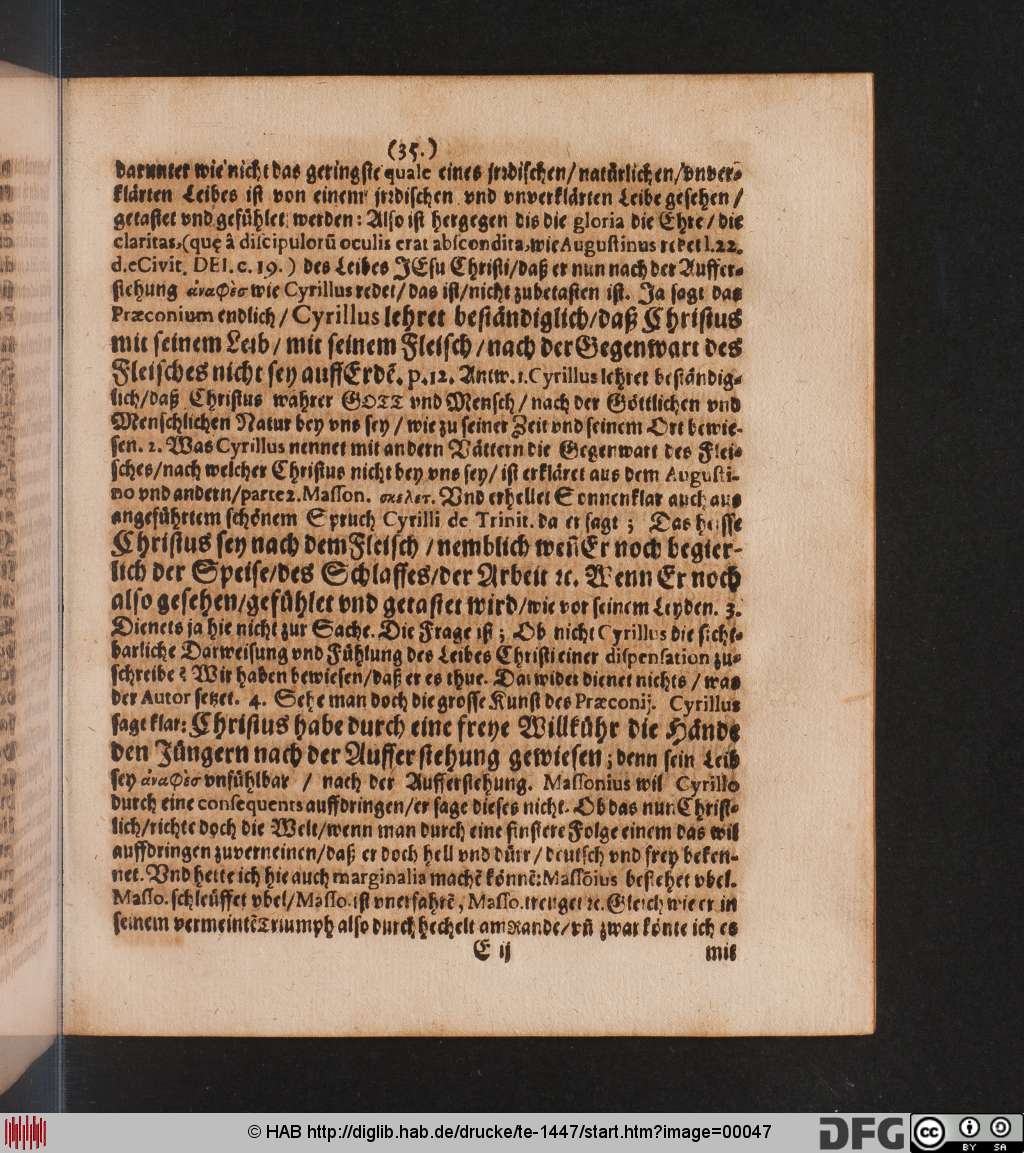 (35.)
darunter wie nicht das geringste quale eines jrrdischen/ natürlichen/ vnver-
klärten Leibes ist von einem jrrdischen vnd vnverklärten Leibe gesehen/
getastet vnd gefühlet werden: Also ist hergegen dis die gloria die Ehre/ die
claritas, (quę â discipulorũ oculis erat abscondita, wie Augustinus redet l. 22.
d. eCivit. DEI. c. 19.) des Leibes JEsu Christi/ daß er nun nach der Auffer-
stehung ἀναφὲσ wie Cyrillus redet/ das ist/ nicht zubetasten ist. Ja sagt das
Præconium endlich/ Cyrillus lehret beständiglich/ daß Christus
mit seinem Leib/ mit seinem Fleisch/ nach der Gegenwart des
Fleisches nicht sey auff Erdẽ. p. 12. Antw. 1. Cyrillus lehret beständig-
lich/ daß Christus wahrer GOTT vnd Mensch/ nach der Göttlichen vnd
Menschlichen Natur bey vns sey/ wie zu seiner Zeit vnd seinem Ort bewie-
sen. 2. Was Cyrillus nennet mit andern Vättern die Gegenwart des Flei-
sches/ nach welcher Christus nicht bey vns sey/ ist erkläret aus dem Augusti-
no vnd andern/ parte 2. Masson. σκελετ. Vnd erhellet Sonnenklar auch aus
angeführtem schönem Spruch Cyrilli de Trinit. da er sagt; Das heisse
Christus sey nach dem Fleisch/ nemblich weñ Er noch begier-
lich der Speise/ des Schlaffes/ der Arbeit ꝛc. Wenn Er noch
also gesehen/ gefühlet vnd getastet wird/ wie vor seinem Leyden. 3.
Dienets ja hie nicht zur Sache. Die Frage ist; Ob nicht Cyrillus die sicht-
barliche Darweisung vnd Fühlung des Leibes Christi einer dispensation zu-
schreibe? Wir haben bewiesen/ daß er es thue. Darwider dienet nichts/ was
der Autor setzet. 4. Sehe man doch die grosse Kunst des Præconij. Cyrillus
sagt klar: Christus habe durch eine freye Willkühr die Hände
den Jüngern nach der Aufferstehung gewiesen; denn sein Leib
sey ἀναφὲσ vnfühlbar / nach der Aufferstehung. Massonius wil Cyrillo
durch eine consequents auffdringen/ er sage dieses nicht. Ob das nun Christ-
lich/ richte doch die Welt/ wenn man durch eine finstere Folge einem das wil
auffdringen zuverneinen/ daß er doch hell vnd dürr/ deutsch vnd frey beken-
net. Vnd hette ich hie auch marginalia machẽ könnẽ: Massõius bestehet vbel.
Masso. schleüffet vbel/ Masso. ist vnerfahrẽ, Masso. treuget ꝛc. Gleich wie er in
seinem vermeintẽ Triumph also durch hechelt am Rande/ vñ zwar könte ich es
E ij
mit
© HAB http://diglib.hab.de/drucke/te-1447/start.htm?image=00047
DFG
cc BY SA